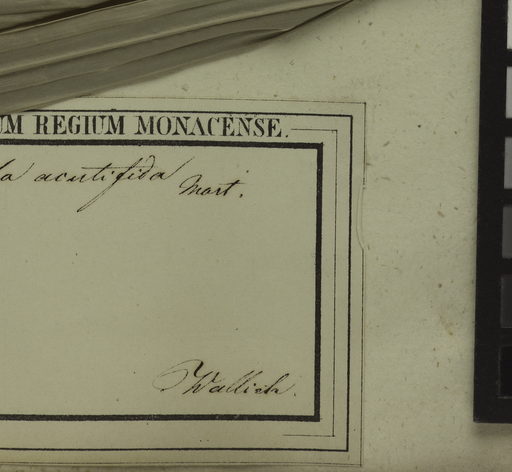 UM REGIUM MONACENSE.
la acutifida Mart.
Wallich.